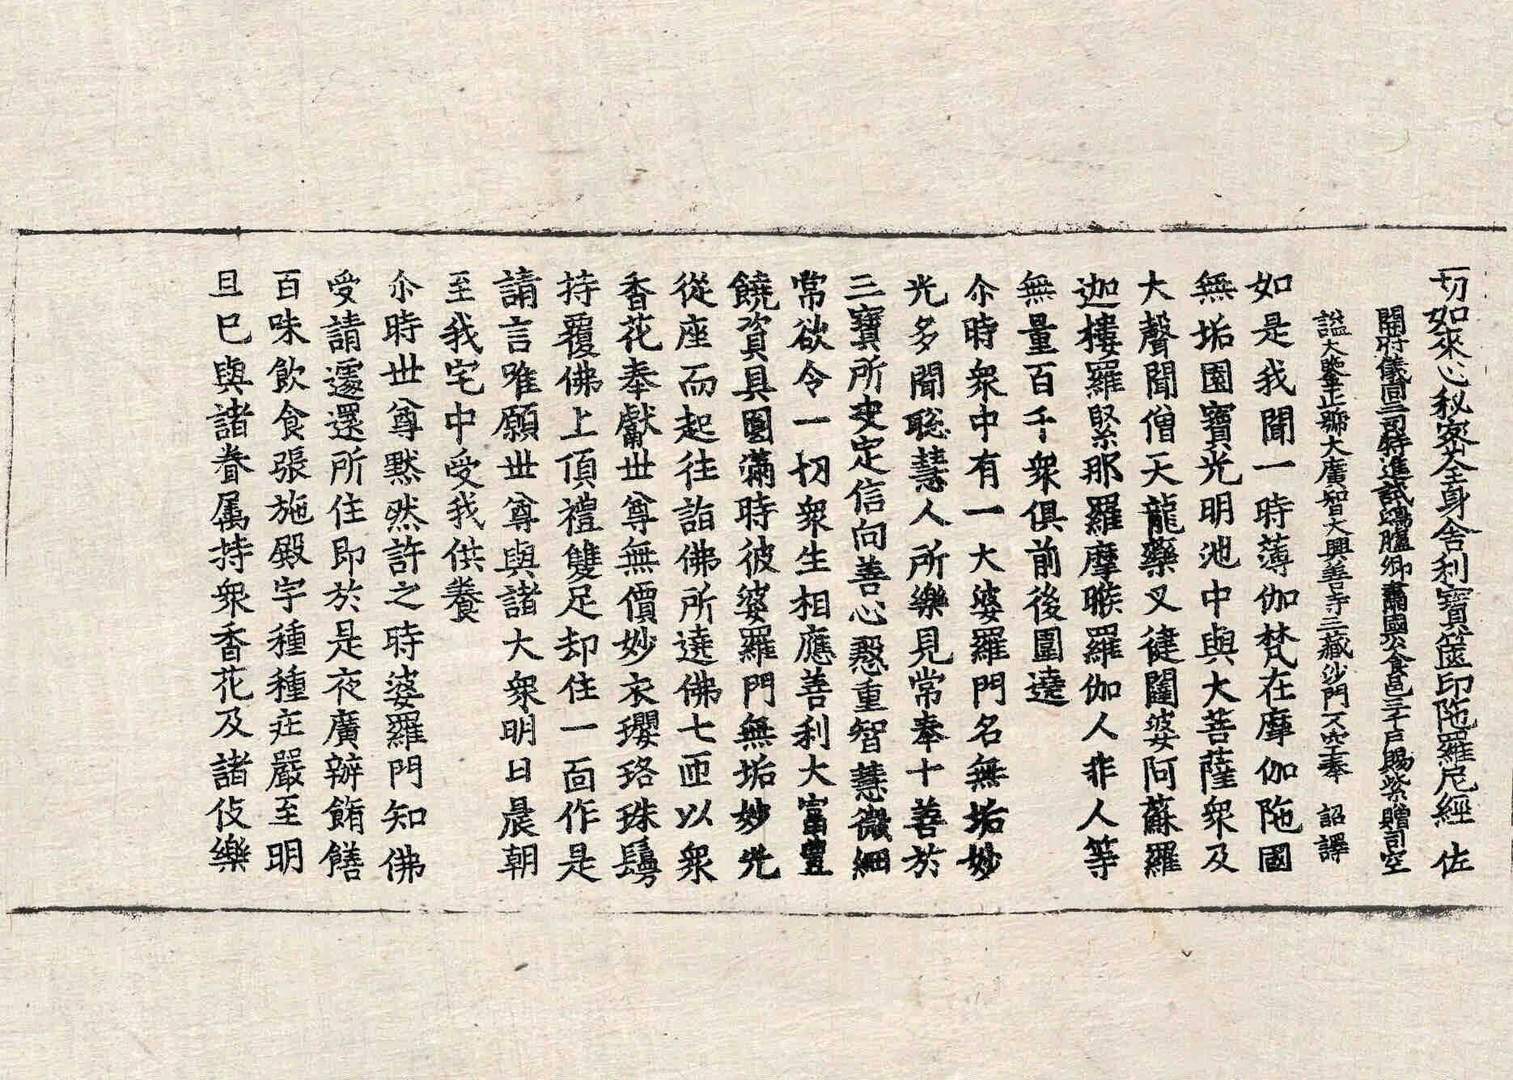 一切如來心秘密全身舍利寶篋印陁羅尼經　佐
開府儀同三司特進試鴻臚卿肅國公食邑三千戶賜紫贈司空
謚大鑒正號大廣智大興善寺三藏沙門不空奉　詔譯
如是我聞一時薄伽梵在摩伽陁國
無垢園寶光明池中與大菩薩衆及
大聲聞僧天龍藥叉犍闥婆阿蘇羅
迦樓羅緊那羅摩睺羅伽人非人等
無量百千衆俱前後圍遶
尒時衆中有一大婆羅門名無垢妙
光多聞聡慧人所樂見常奉十善於
三寶所决定信向善心慇重智慧微細
常欲令一切衆生相應善利大富豐
饒資具圓滿時彼婆羅門無垢妙光
從座而起往詣佛所遶佛七匝以衆
香花奉獻世尊無價妙衣瓔珞珠鬘
持覆佛上頂禮雙足却住一面作是
請言唯願世尊與諸大衆明日晨朝
至我宅中受我供養
尒時世尊黙然許之時婆羅門知佛
受請遽還所住即於是夜廣辦餚饍
百味飲食張施殿宇種種庄嚴至明
旦已與諸眷属持衆香花及諸伎樂